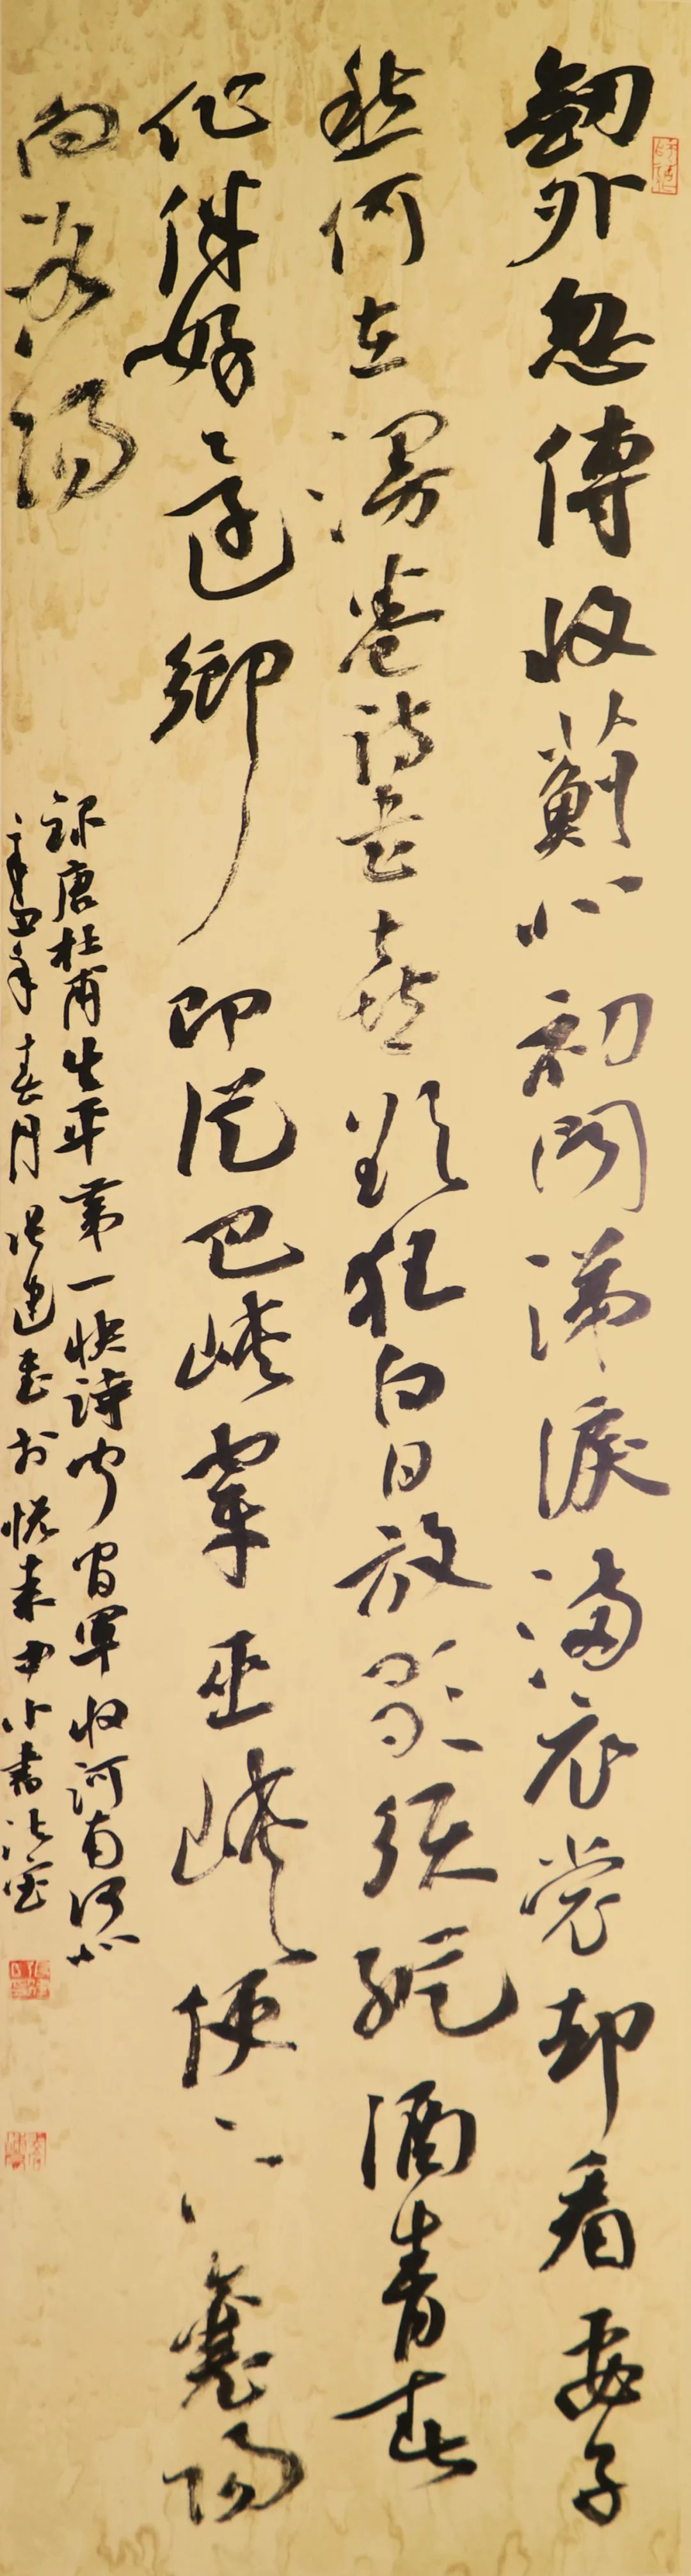 劔外忽傳收薊北初聞涕淚滿衣裳却看妻子
愁何在漫卷詩書喜欲狂白日放歌須縱酒青春
作伴好還鄉即從巴峽穿巫峽便下襄陽
向洛陽
錄唐杜甫生平第一快詩聞官軍收河南河北
辛丑年春月 建書於悦來中小書法室